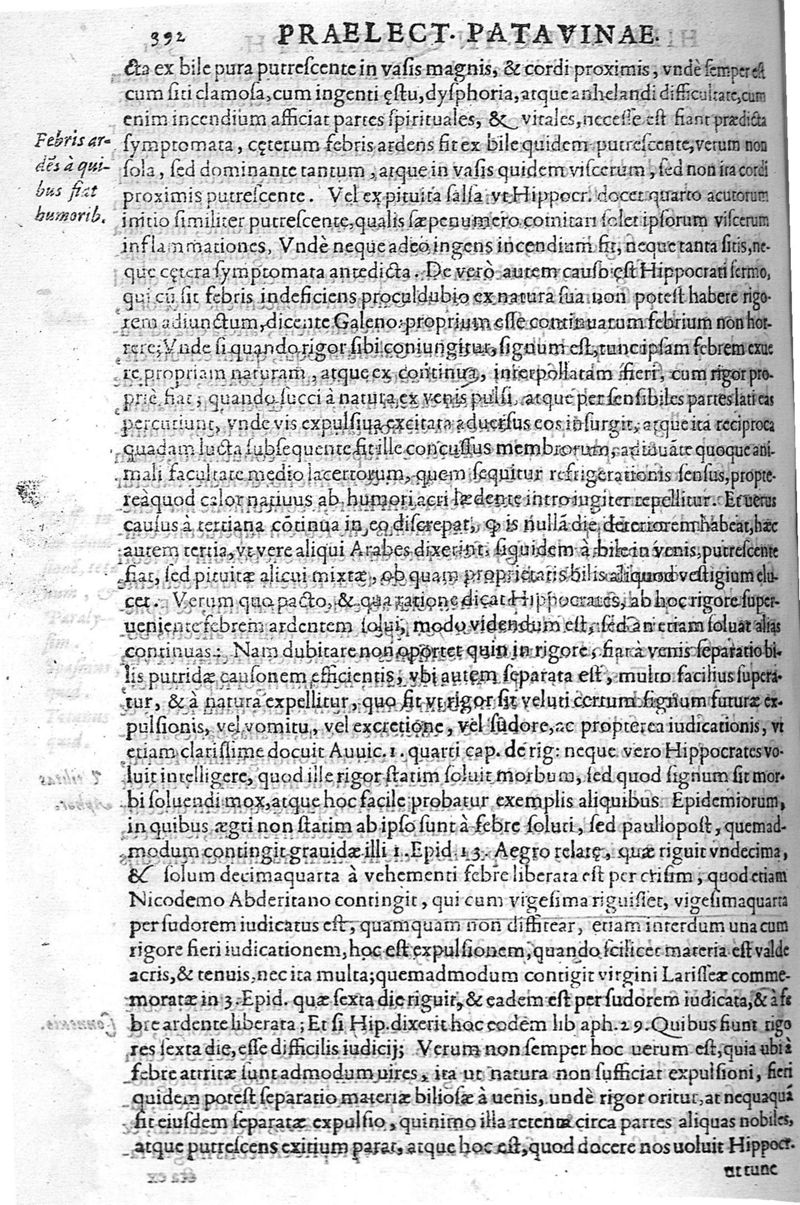 392 PRAELECT. PATAVINAE.
cta ex bile pura putrescente in vasis magnis, & cordi proximis, vndè semper est
cum siti clamosa, cum ingenti ęstu, dysphoria, atque anhelandi difficultate, cum
enim incendium afficiat partes spirituales, & vitales, necesse est fiant prædicta
Febris ar-
dẽs à qui-
bus fiat
humorib.
symptomata, cęterum febris ardens fit ex bile quidem putrescente, verum non
sola, sed dominante tantum, atque in vasis quidem viscerum, sed non ita cordi
proximis putrescente. Vel ex pituita salsa vt Hippocr. docet quarto acutorum
initio similiter putrescente, qualis sæpenumero comitari solet ipsorum viscerum
inflammationes, Vndè neque adeò ingens incendium fit, neque tanta sitis, ne-
que cętera symptomata antedicta. De verò autem causo est Hippocrati sermo,
qui cũ sit febris indeficiens proculdubio ex natura sua non potest habere rigo-
rem adiunctum, dicente Galeno: proprium esse continuarum febrium non hor-
rere; Vnde si quando rigor sibi coniungitur, signum est, tunc ipsam febrem exue
re propriam naturam, atque ex continua, interpollatam fieri, cum rigor pro-
priè fiat; quando succi à natura ex venis pulsi, atque per sensibiles partes lati eas
percutiunt, vnde vis expulsiua excitata aduersus eos insurgit, atque ita reciproca
quadam lucta subsequente fit ille concussus membrorum, adiuuãte quoque ani-
mali facultate medio lacertorum, quem sequitur refrigerationis sensus, propte-
reàquod calor natiuus ab humori acri lædente intro iugiter repellitur. Et verus
causus à tertiana cõtinua in eo discrepat, ꝙ is nullã die deteriorem habeat, hæc
autem tertia, vt vere aliqui Arabes dixerint. siquidem à bile in venis putrescente
fiat, sed pituitæ alicui mixtæ, ob quam proprietatis bilis aliquod vestigium elu-
cet. Verum quo pacto, & qua ratione dicat Hippocrates, ab hoc rigore super-
ueniente febrem ardentem solui, modo videndum est, sed an etiam soluat alias
continuas: Nam dubitare non oportet quin in rigore, fiat à venis separatio bi-
lis putridæ causonem efficientis, vbi autem separata est, multo facilius supera-
tur, & à natura expellitur, quo fit vt rigor sit veluti certum signum futuræ ex-
pulsionis, vel vomitu, vel excretione, vel sudore, ac propterea iudicationis, vt
etiam clarissime docuit Auuic. 1. quarti cap. de rig: neque vero Hippocrates vo-
luit intelligere, quod ille rigor statim soluit morbum, sed quod signum sit mor-
bi soluendi mox, atque hoc facile probatur exemplis aliquibus Epidemiorum,
in quibus ægri non statim ab ipso sunt à febre soluti, sed paullopost, quemad-
modum contingit grauidæ illi 1. Epid. 13. Aegro relatę, quæ riguit vndecima,
& solum decimaquarta à vehementi febre liberata est per crisim, quod etiam
Nicodemo Abderitano contingit, qui cum vigesima riguisset, vigesimaquarta
per sudorem iudicatus est, quamquam non diffitear, etiam interdum una cum
rigore fieri iudicationem, hoc est expulsionem, quando scilicet materia est valde
acris, & tenuis, nec ita multa; quemadmodum contigit virgini Larissææ comme-
moratæ in 3. Epid. quæ sexta die riguit, & eadem est per sudorem iudicata, & à fe
bre ardente liberata; Et si Hip. dixerit hoc eodem lib aph. 29. Quibus fiunt rigo
res sexta die, esse difficilis iudicij; Verum non semper hoc uerum est, quia ubi à
febre attritæ sunt admodum uires, ita ut natura non sufficiat expulsioni, fieri
quidem potest separatio materiæ biliosæ à uenis, undè rigor oritur, at nequaquã
fit eiusdem separatæ expulsio, quinimo illa retenta circa partes aliquas nobiles,
atque putrescens exitium parat, atque hoc est, quod docere nos uoluit Hippocr.
ut tunc